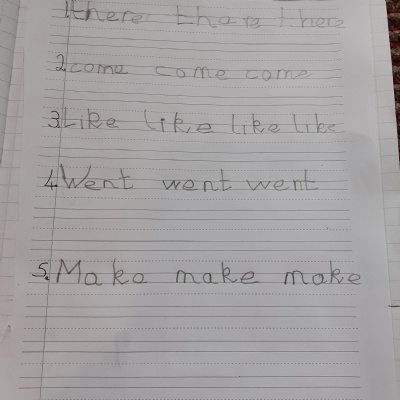 1.there thare there
2.come come come
3.Like like like like
4.Went went went
5.Make make make